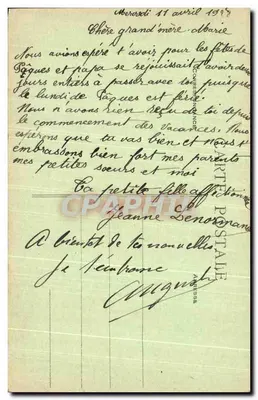 Mercredi 11 avril 19
Chère grand'mère Marie
Nous avions espéré t'avoir pour les fêtes de
Pâques et papa se réjouissait d'avoir deux
jours entiers à passer avec toi puisque
le lundi de Pâques est férié.
Nous n'avons rien reçu de toi depuis
le commencement des vacances. Nous
espérons que tu vas bien et nous t'
embrassons bien fort mes parents
mes petites sœurs et moi
Ta petite fille affectionnée
Jeanne Lenormand
A bientôt de tes nouvelles
Je t'embrasse
CARTE POSTALE
ADRESSE
CPAPHIL